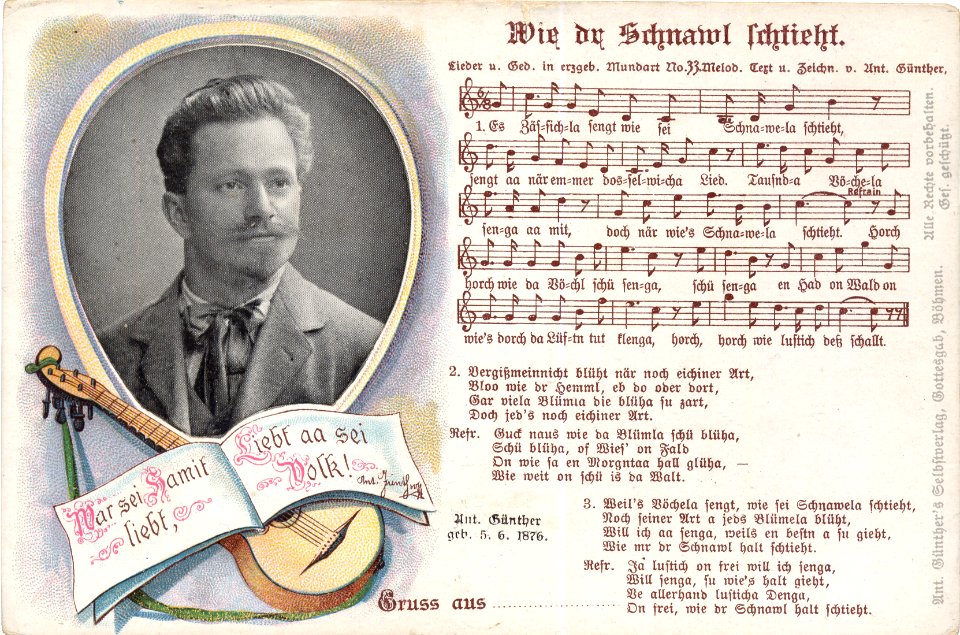 Wie dr Schnawl schtieht.
Lieder u. Ged. in erzgeb. Mundart No.33. Melod. Text u. Zeichn. v. Ant. Günther,
1. Es Zäs=sich=la sengt wie sei Schna=we=la schtieht,
sengt aa när em=mer dos=sel=wi=cha Lied. Tausnd=a Vö=che=la
Refrain
sen=ga aa mit, doch när wie's Schna=we=la schtieht. Horch
horch wie da Vö=chl schü sen=ga, schü sen=ga en Had on Wald on
wie's dorch da Lüf=tn tut klenga, horch, horch wie lustich deß schallt.
2. Vergißmeinnicht blüht när noch eichiner Art,
Bloo wie dr Hemml, eb do oder dort,
Gar viela Blümla die blüha su zart,
Doch jed's noch eichiner Art.
Refr. Guck naus wie da Blümla schü blüha,
Schü blüha, of Wies' on Fald
On wie sa en Morgntaa hall glüha, —
Wie weit on schü is da Walt.
3. Weil's Vöchela sengt, wie sei Schnawela schtieht,
Noch seiner Art a jeds Blümela blüht,
Will ich aa senga, weils en bestn a su gieht,
Wie mr dr Schnawl halt schtieht.
Refr. Ja lustich on frei will ich senga,
Will senga, su wie's halt gieht,
Ve allerhand lusticha Denga,
On frei, wie dr Schnawl halt schtieht.
War sei Hamit
liebt,
Liebt aa sei
Volk!
Ant. Günther
Ant. Günther
geb. 5. 6. 1876.
Gruss aus
Alle Rechte vorbehalten.
Ges. geschützt.
Ant. Günther's Selbstverlag, Gottesgab, Böhmen.